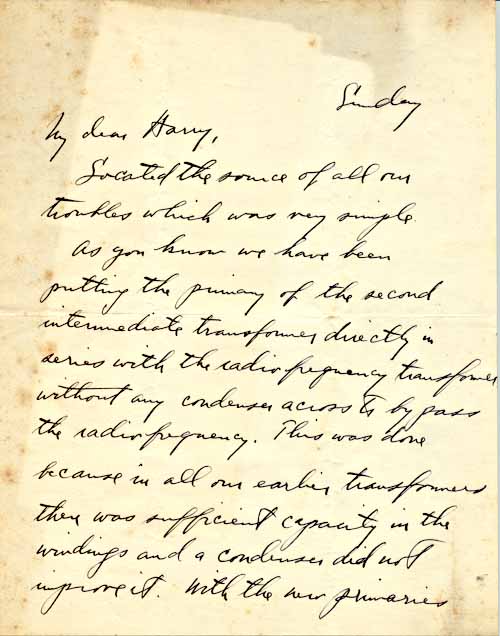 Sunday
My dear Harry,
Located the source of all our
troubles which was very simple.
As you know we have been
putting the primary of the second
intermediate transformer directly in
series with the radio frequency transformer
without any condenser across to by pass
the radio frequency. This was done
because in all our earlier transformers
there was sufficient capacity in the
windings and a condenser did not
improve it. With the new primaries